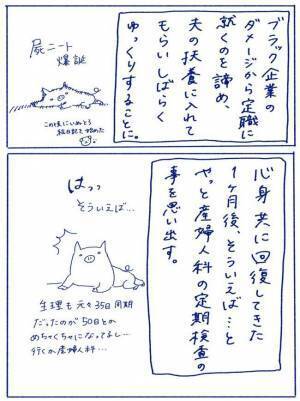 ブラック企業の
ダメージから定職に
就くのを諦め、
夫の扶養に入れて
もらいしばらく
ゆっくりすることに。
屍ニート
爆誕
この頃にいぬとう
絵日記を始めた
心身共に回復してきた
1ヶ月後、そういえば…と
やっと産婦人科の定期検査の
事を思い出す。
はっっ
そういえば…
生理も元々35日周期
だったのが50日とか
めちゃくちゃになってるし…
行くか産婦人科…